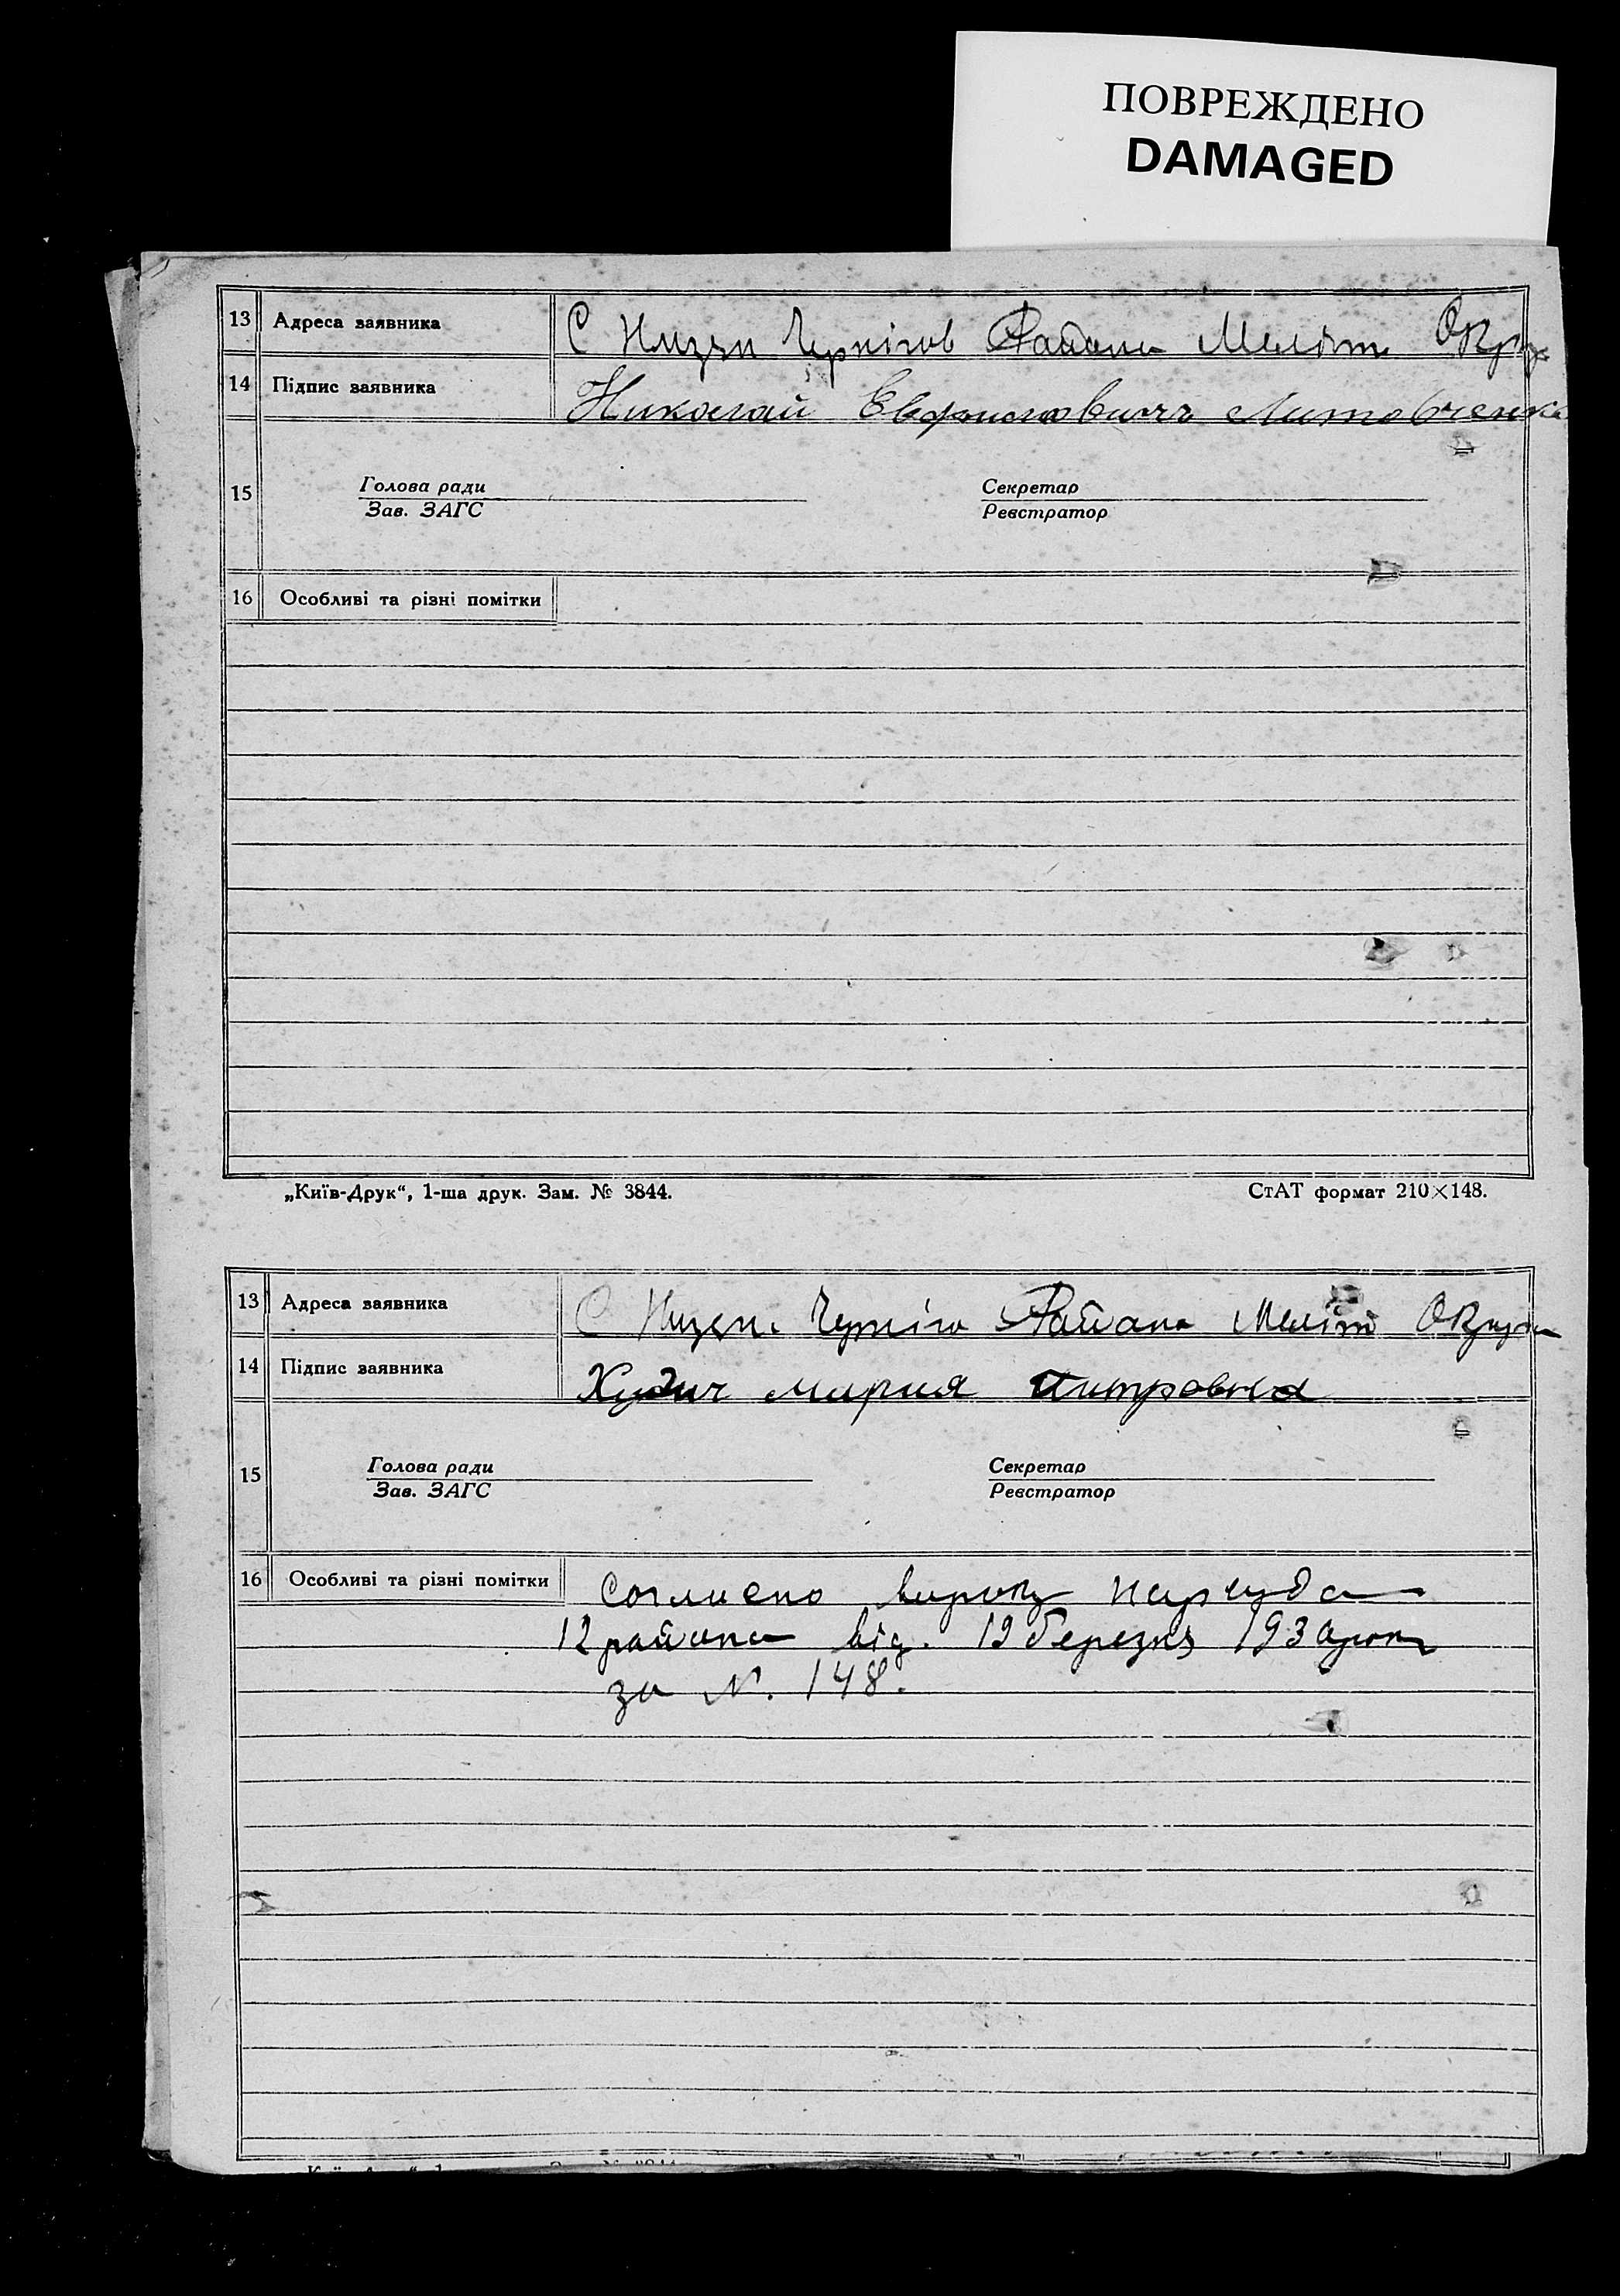 ПОВРЕЖДЕНО
DAMAGED
13 Адреса заявника С Низян Чернігов Района Меліт Окру
14 Підпис заявника Николай Литовченко
15 Голова ради Секретар
Зав. ЗАГС Реєстратор
16 Особливі та різні помітки
„Київ-Друк“, 1-ша друк. Зам. № 3844. СтАТ формат 210×148.
13 Адреса заявника С Низян. Черніго Района Меліт Округи
14 Підпис заявника Мария Питровна
15 Голова ради Секретар
Зав. ЗАГС Реєстратор
16 Особливі та різні помітки вироку Нарсуда
12 района від. 12 березня 1930 року
за N. 148.